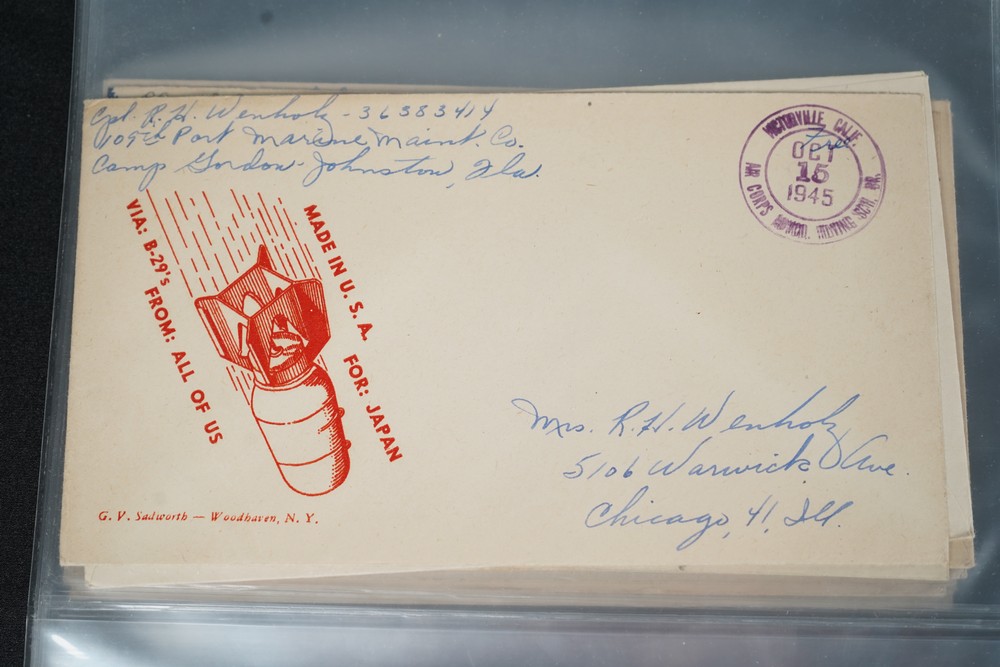 Cpl. R. H. Wenholz - 36383414
109th Port Marine Maint. Co.
Camp Gordon Johnston, Fla.
VICTORVILLE, CALIF.
Free
OCT
15
1945
AIR CORPS
SCH. BR.
VIA: B-29's FROM: ALL OF US
MADE IN U. S. A. FOR: JAPAN
Mrs. R. H. Wenholz
5106 Warwick Ave.
Chicago, 41, Ill.
G. V. Sadworth — Woodhaven, N. Y.